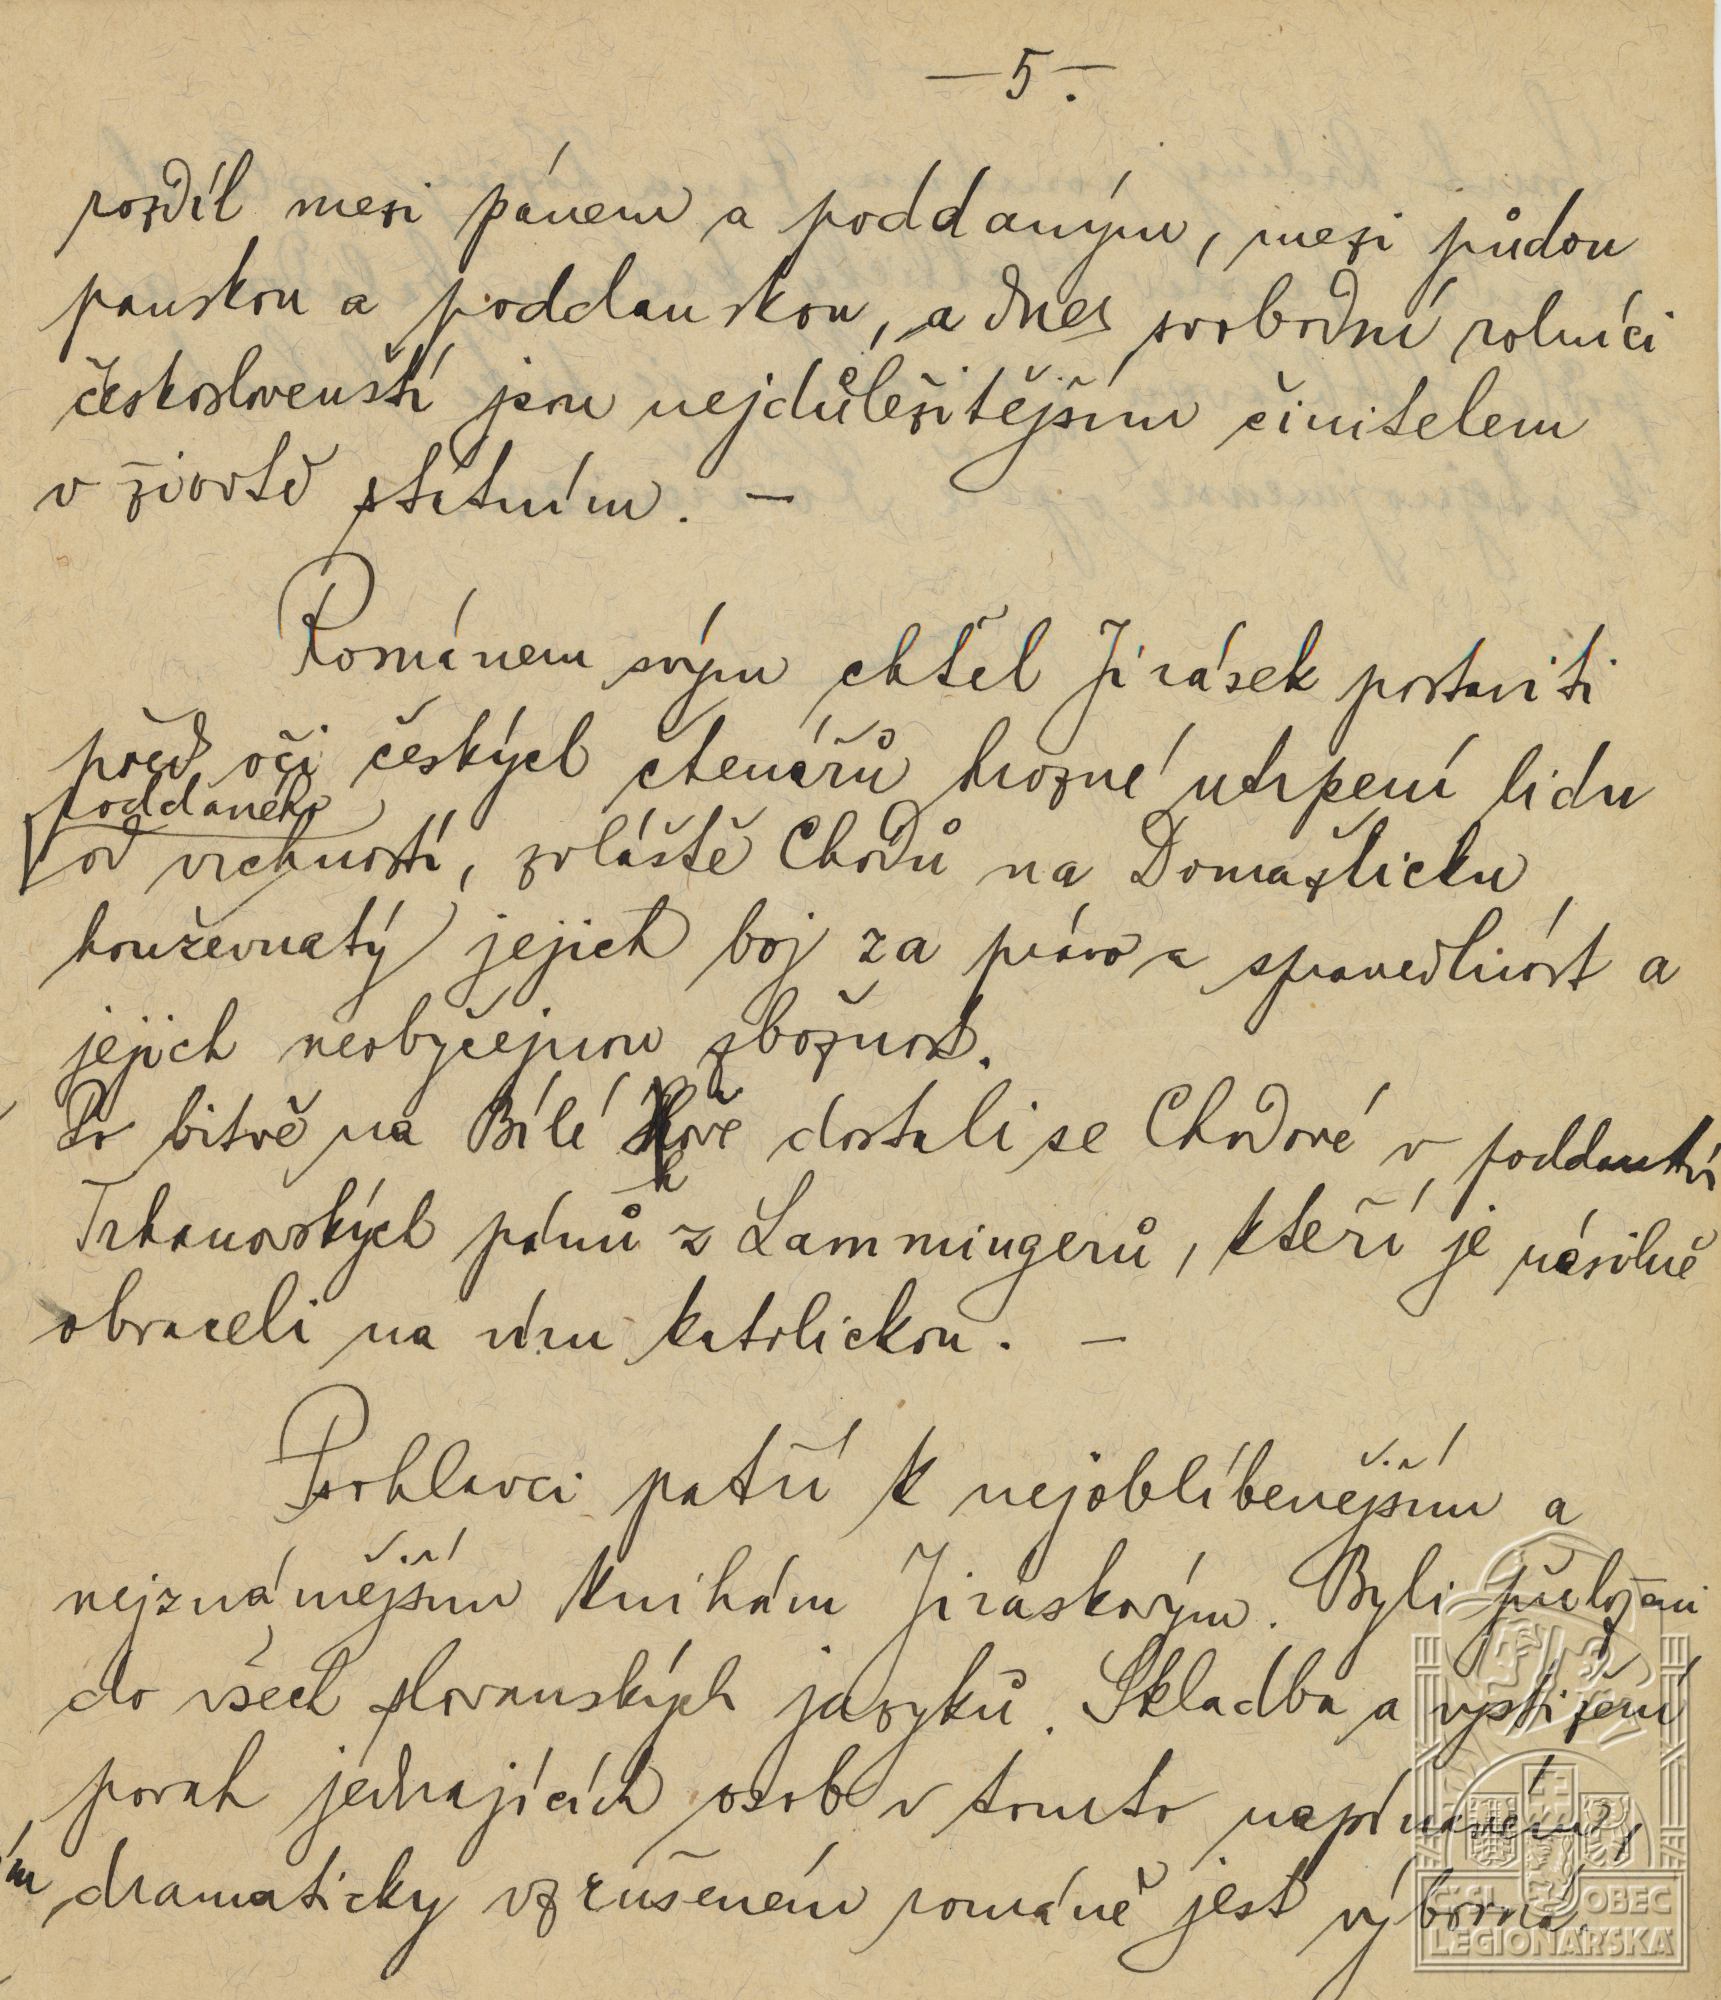 —5.—
rozdíl mezi pánem a poddaným, mezi půdou
panskou a poddanskou, a dnes svobodní rolníci
českoslovenští jsou nejdůležitějším činitelem
v životě státním. —
Románem svým chtěl Jirásek postaviti
před oči českých čtenářů hrozné utrpení lidu
poddaného
od vrchností, zvláště Chodů na Domažlicku
houževnatý jejich boj za právo a spravedlnost a
jejich neobyčejnou zbožnost.
Po bitvě na Bílé Hoře dostali se Chodové v poddanství
Trhanovských pánů z Lammingerů, kteří je násilně
obraceli na víru katolickou. —
Psohlavci patří k nejoblíbenějším a
nejznámějším knihám Jiráskovým. Byli přeloženi
do všech slovanských jazyků. Skladba a vystižení
povah jednajících osob v tomto napínavém,
dramaticky vzrušeném románě jest výborná.
ČSL. OBEC
LEGIONÁŘSKÁ